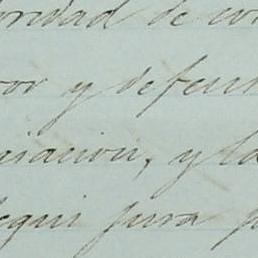 oridad de con
or y defens
aracion, y la
equi para p